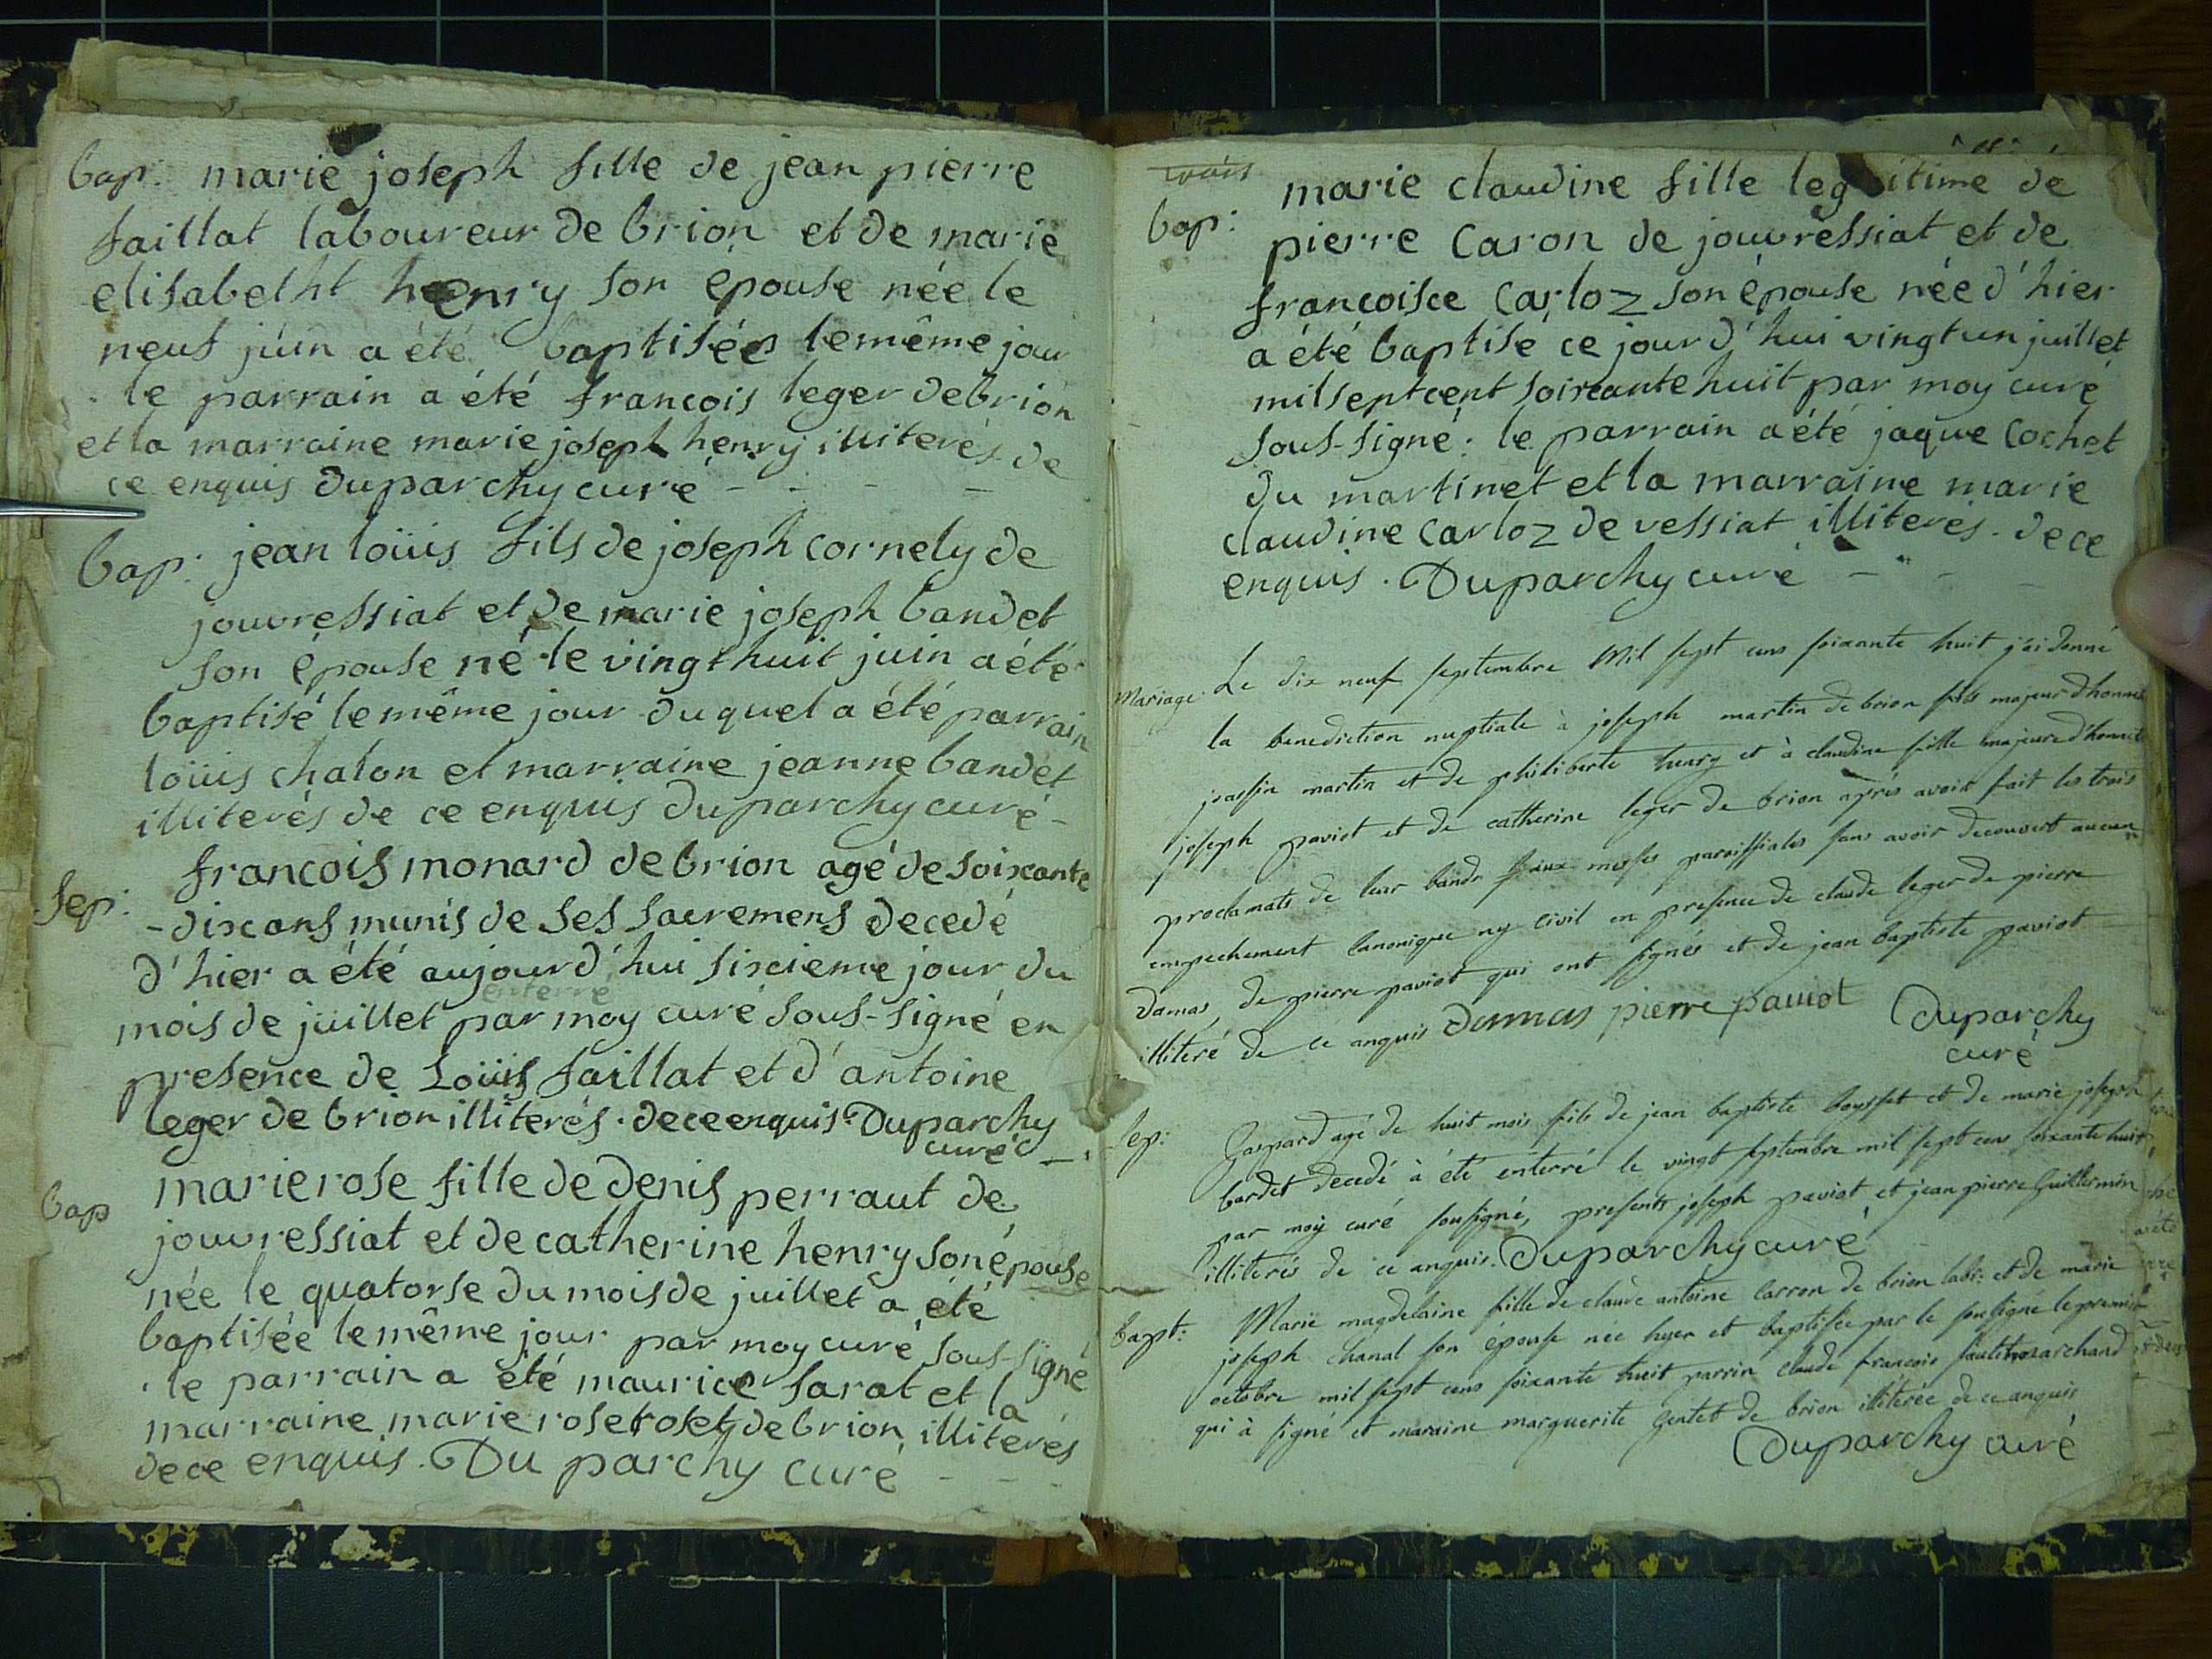 bap: marie joseph fille de jean pierre
faillat laboureur de brion et de marie
elisabelht henry son épouse née le
neuf juin a été baptisée le même jour
le parrain a été francois leger de brion
et la marraine marie joseph henry illiterés de
ce enquis Duparchy curé
bap: jean loüis fils de joseph cornely de
jouvressiat et de marie joseph bandet
son épouse né le vingt huit juin a été
baptisé le même jour duquel a été parrain
loüis chalon et marraine jeanne bandet
illiterés de ce enquis duparchy curé
sep: francois monard de brion agé de soixante
-dix ans munis de ses sacremens decedé
d'hier a été aujourd'hui sixieme jour du
enterré
mois de juillet par moy curé sous-signé en
presence de Loüis faillat et d'antoine
leger de brion illiterés. de ce enquis. Duparchy
curé
bap marie rose fille de Denis perraut de
jouvressiat et de catherine henry son épouse
née le quatorse du mois de juillet a été
baptisée le même jour par moy curé sous-signé
le parrain a été maurice sarat et la
marraine marie rose roset de brion illiterés
de ce enquis. Du parchy curé
trois
bap: marie claudine fille legitime de
pierre Caron de jouvressiat et de
francoisce Carloz son épouse née d'hier
a été baptisé ce jour d'hui vingt un juillet
mil sept cent soixante huit par moy curé
sous-signé: le parrain a été jaque Cochet
du martinet et la marraine marie
claudine Carloz de vessiat illiterés. de ce
enquis. Duparchy curé
Mariage. Le dix neuf septembre Mil sept cens soixante huit j'ai donné
la benediction nuptiale à joseph martin de brion fils majeur d'honnete
martin et de philiberte henry et à claudine fille majeure d'honnete
joseph paviot et de catherine leger de brion après avoir fait les trois
proclamats de leur bands messes paroissiales sans avoir decouvert aucun
empechement canonique ny civil en presence de claude leger de pierre
Damas, de pierre paviot qui ont signés et de jean baptiste paviot
illiteré de ce anquis Damas pierre paviot Duparchy
curé
Sep: Gaspard agé de huit mois fils de jean baptiste boysset et de marie joseph
bardet decedé à été enterré le vingt septembre mil sept cens soixante huit
par moy curé sousigné, presents joseph paviot et jean pierre Guillermin
illiterés de ce anquis. Duparchy curé
bapt: Marie magdelaine fille de claude antoine Carron de brion labr: et de marie
joseph chanal son épouse née hyer et baptisée par le sousigné le premier
octobre mil sept cens soixante huit parrin claude francois marchand
qui à signé et maraine marguerite gentet de brion illiterée de ce anquis
Duparchy curé